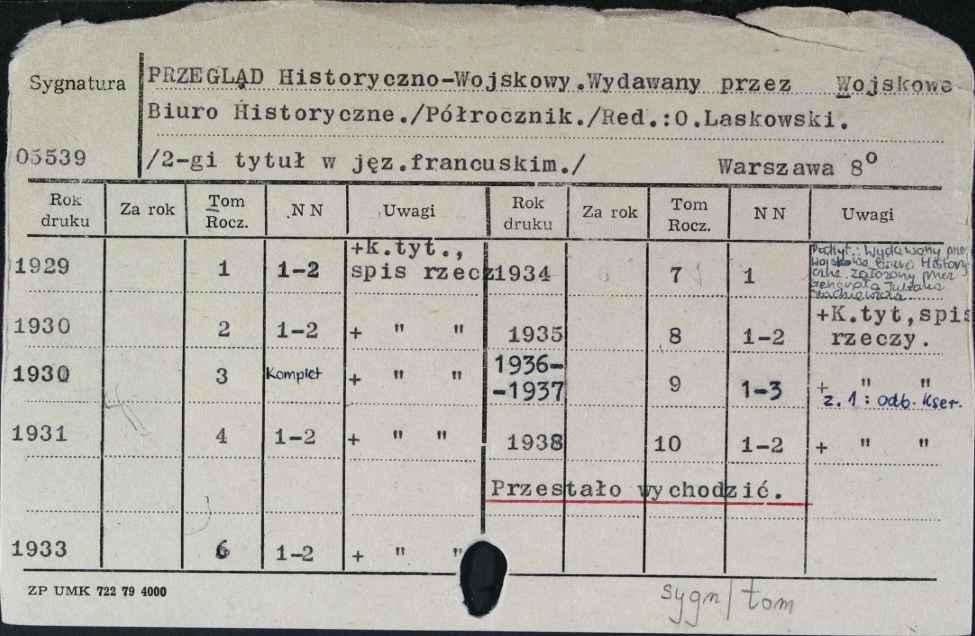 Sygnatura PRZEGLĄD Historyczno-Wojskowy.Wydawany przez Wojskowe
Biuro Historyczne./Półrocznik./Red.:O.Laskowski.
05539 /2-gi tytuł w jęz.francuskim./ Warszawa 8°
Rok druku Za rok Tom Rocz. NN Uwagi Rok druku Za rok Tom Rocz. NN Uwagi
1929 1 1-2 +k.tyt., spis rzecz 1934 7 1 Podtyt.: Wydawany przez Wojskowe Biuro History czne założony przez generała Juliana Stachiewicza
1930 2 1-2 + " " 1935 8 1-2 +K.tyt,spis rzeczy.
1930 3 Komplet + " " 1936--1937 9 1-3 + " " z.1: odb. kser.
1931 4 1-2 + " " 1938 10 1-2 + " "
Przestało wychodzić.
1933 6 1-2 + " "
ZP UMK 722 79 4000
sygn/tom